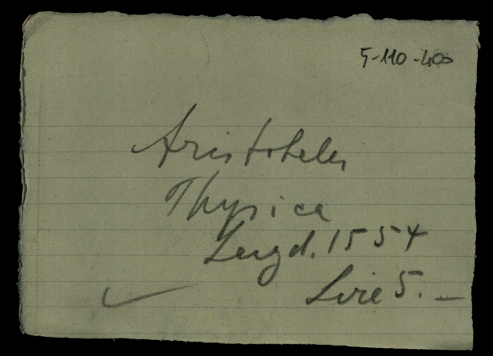 5-110-400
Aristoteles
Physica
Lugd. 1554
Lire 5. —